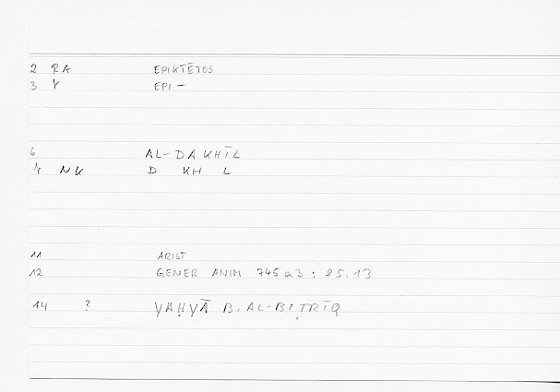 2 RA EPIKTĒTOS
3 EPI-
6 AL-DAKHĪL
NK D KH L
11 ARIST
12 GENER ANIM 745 a 3 : 25.13
14 ? YAḤYĀ B. AL-BIṬRĪQ